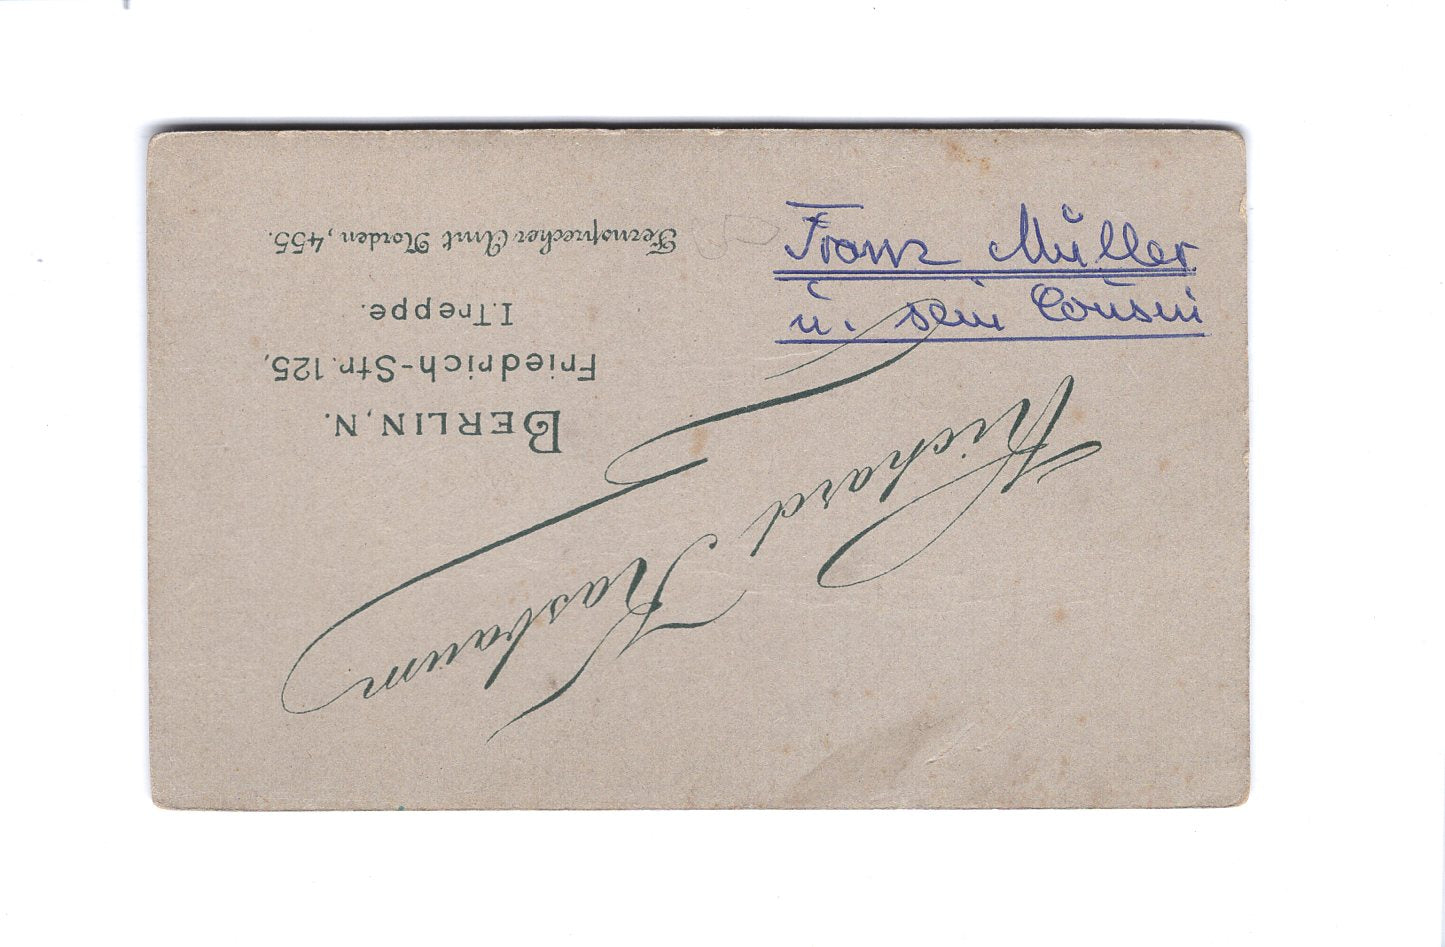 Franz Müller
u. sein Cousin
Richard Kasbaum
BERLIN, N.
Friedrich-Str. 125,
I. Treppe.
Fernsprecher Amt Norden, 455.